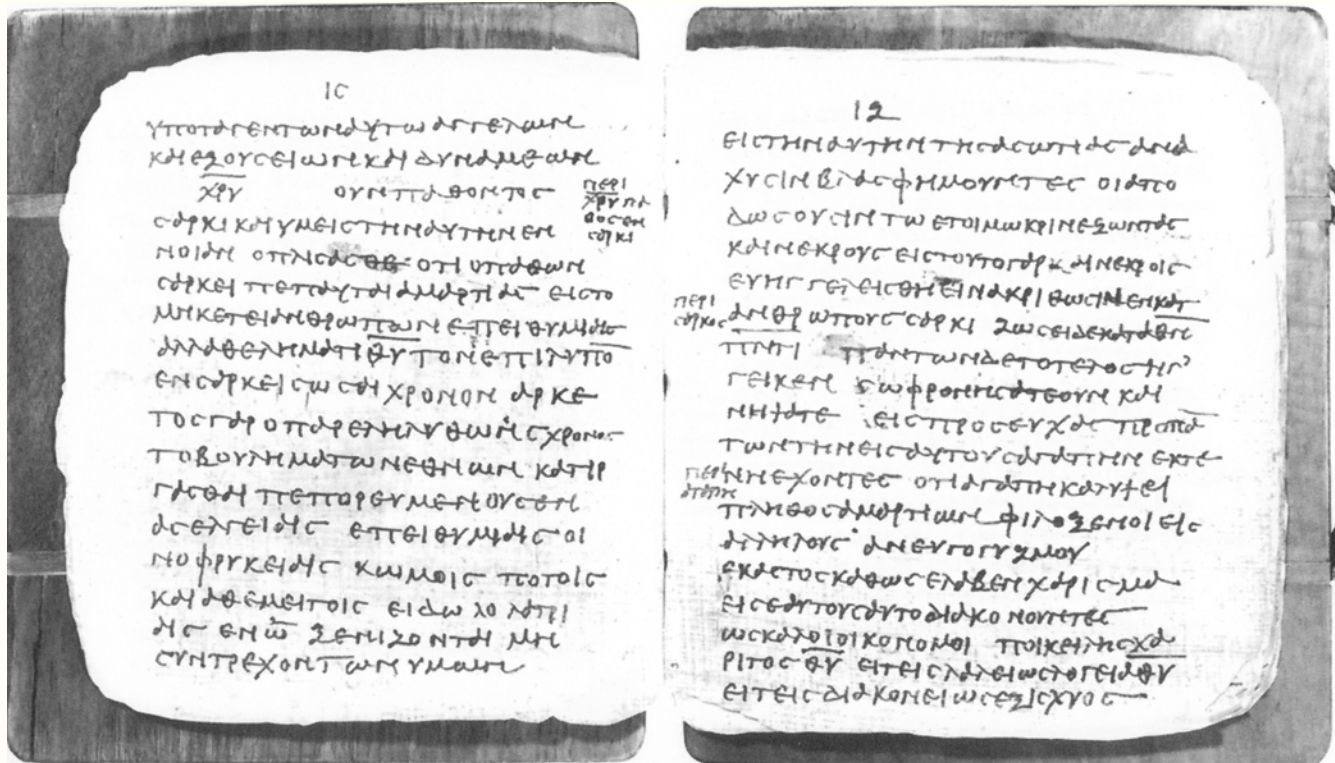 ιϛ
υποταγεντωναυτωαγγελων
καιεξουσειωνκαιδυναμεων
χ̅ρ̅υ̅ ουνπαθοντος
σαρκικαιυμειςτηναυτηνεν
νοιαν οπλισασθε οτιοπαθων
σαρκει πεπαυταιαμαρτιας ειστο
μηκετειανθρωπωνεπειθυμιαις
αλλαθεληματιθ̅υ̅ τονεπιλυπο
ενσαρκεισωσαι χρονον αρκε
τοσγαροπαρεληλυθωσχρονος
τοβουληματωνεθνων κατιρ
γασθαι πεπορευμενουσεν
ασελγειαις επειθυμιαις οι
νοφρυκειαις κωμοις ποτοις
καιαθεμειτοις ειδωλολατρι
αις ενω ξενιζονται μη
συντρεχοντωνυμων
περι
χ̅ρ̅υ̅ πα
θοσεν
σαρκι
ιζ
ειστηναυτηντησασωτιας ανα
χυσινβλασφημουντες οιαπο
δωσουσιντωετοιμωκρινεζωντας
καινεκρουσειστουτογαρκαινεκροις
ευηγγελεισθηεινακριθωσινμενκατ
ανθρωπουςσαρκι ζωσειδεκαταθν
πνι παντωνδετοτελοσην
γεικεν σωφρονησατεουν και
νηψατε εισπροσευχασπροπα
τωντηνεισαυτουσαγαπην εκτε
νηεχοντες οτιαγαπηκαλυψει
πληθοσαμαρτιων φιλοξενοιεις
αλληλους ανευγογυζμου
εκαστοσκαθωσελαβενχαρισμα
εισεαυτουσαυτοδιακονουντες
ωσκαλοιοικονομοι ποικειλησχα
ριτος θ̅υ̅ ειτεισλαλειωσλογειαθ̅υ̅
ειτεισδιακονειωσεξισχυος
περι
σαρκος
περι
αγαπη